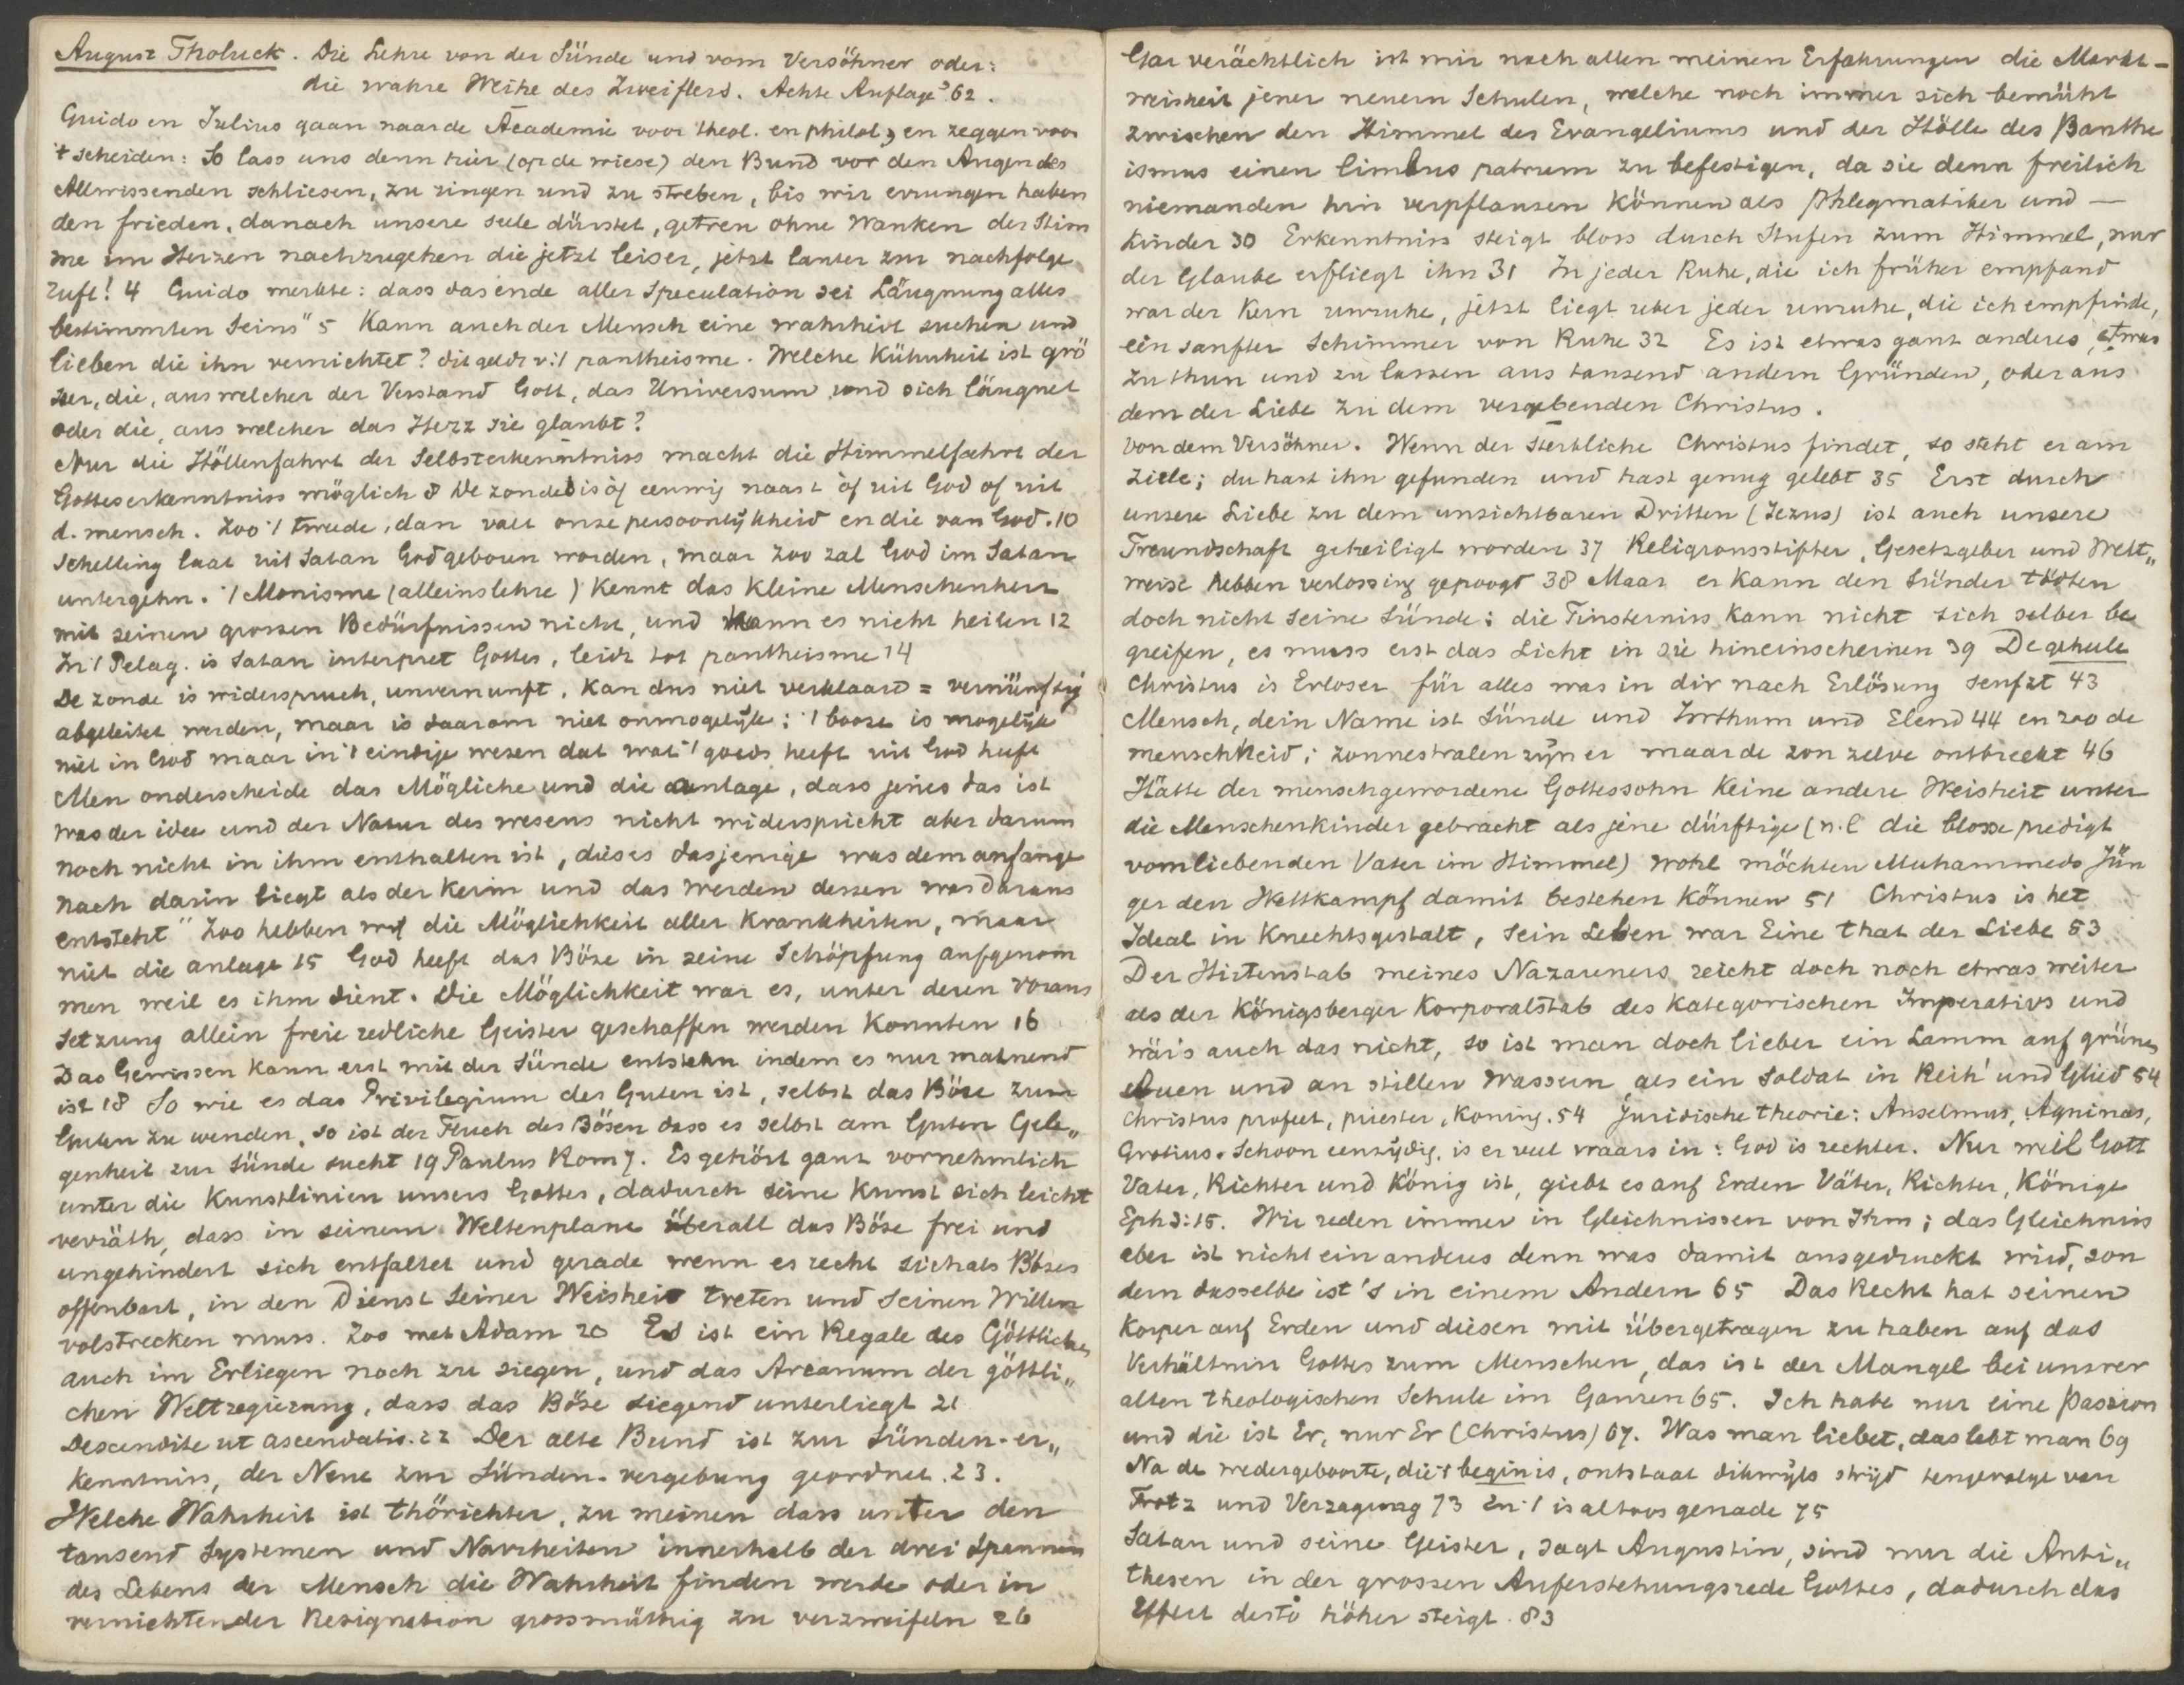 August Tholuck. Die Lehre von der Sünde und vom Versöhner oder:
die wahre Weihe des Zweiflers. Achte Auflage '62.
Guido en Julius gaan naar de Academie voor theol. en philol, en zeggen voor
't scheiden: So lass uns denn hier (op de wiese) den Bund vor den Augen des
Allwissenden schliesen, zu ringen und zu streben, bis wir errungen haben
den frieden, danach unsere seele dürstet, getreu ohne Wanken der Stim
me im Herzen nachzugehen die jetzt leiser, jetzt lauter zur nachfolge
ruft! 4 Guido merkte: dass das ende aller Speculation sei Läugnung alles
bestimmten Seins" 5 Kann auch der Mensch eine wahrheit suchen und
lieben die ihn vernichtet? dit geldt v. 't pantheisme. Welche Kühnheit ist grö
szer, die, aus welcher der Verstand Gott, das Universum und sich läugnet
oder die, aus welcher das Herz sie glaubt?
Nur die Höllenfahrt der Selbsterkenntniss macht die Himmelfahrt der
Gotteserkenntniss möglich 8 De zonde is òf eeuwig naast òf uit God of uit
d. mensch. Zoo 't tweede, dan valt onze persoonlijkheid en die van God. 10
Schelling laat uit Satan God geboren worden, maar zoo zal God im Satan
untergehn. 't Monisme (alleinslehre) kennt das kleine Menschenherz
mit seinen grossen Bedürfnissen nicht, und kann es nicht heilen 12
In 't Pelag. is Satan interpret Gottes, leidt tot pantheisme 14
De zonde is widerspruch, unvernunft, kan dus niet verklaard = vernünftig
abgeleitet werden, maar is daarom niet onmogelijk; 't booze is mogelijk
niet in God maar in 't eindige wezen dat wat 't goeds heeft uit God heeft
Men onderscheide das Mögliche und die anlage, dass jenes das ist
was der idee und der Natur des wesens nicht widerspricht aber darum
noch nicht in ihm enthalten ist, dieses dasjenige was dem anfange
nach darin liegt als der Keim und das werden dessen was daraus
entsteht" Zoo hebben wij die Möglichkeit aller Krankheiten, maar
niet die anlage 15 God heeft das Böse in seine Schöpfung aufgenom
men weil es ihm dient. Die Möglichkeit war es, unter deren Voraus
setzung allein freie redliche Geister geschaffen werden konnten 16
Das Gewissen kann erst mit der Sünde entstehn indem es nur mahnend
ist 18 So wie es das Privilegium des Guten ist, selbst das Böse zum
Guten zu wenden, so ist der Fluch des Bösen dass es selbst am Guten Gele„
genheit zur Sünde sucht 19 Paulus Rom 7. Es gehört ganz vornehmlich
unter die Kunstlinien unsers Gottes, dadurch seine Kunst sich leicht
verräth, dass in seinem Weltenplane überall das Böse frei und
ungehindert sich entfaltet und gerade wenn es recht sich als Böses
offenbart, in den Dienst seiner Weisheit treten und seinen Willen
volstrecken muss. Zoo met Adam 20 Es ist ein Regale des Göttlichen
auch im Erliegen noch zu siegen, und das Arcanum der göttli„
chen Weltregierung, dass das Böse siegend unterliegt 21
Descendite ut ascendatis. 22 Der alte Bund ist zur Sünden-er„
kenntniss, der Neue zur Sünden-vergebung geordnet. 23.
Welche Wahrheit ist thörichter, zu meinen dass unter den
tausend Systemen und Narrheiten innerhalb der drei Spannen
des Lebens der Mensch die Wahrheit finden werde oder in
vernichtender Resignation grossmüthig zu verzweifeln 26
Gar verächtlich ist mir nach allen meinen Erfahrungen die Markt-
weisheit jener neuern Schulen, welche noch immer sich bemüht
zwischen den Himmel des Evangeliums und der Hölle des Panthe
ismus einen limbus patrum zu befestigen, da sie denn freilich
niemanden hin verpflanzen können als Phlegmatiker und —
Kinder 30 Erkenntniss steigt bloss durch Stufen zum Himmel, nur
der Glaube erfliegt ihn 31 In jeder Ruhe, die ich früher empfand
war der Kern unruhe, jetzt liegt uber jeder unruhe, die ich empfinde,
ein sanfter Schimmer von Ruhe 32 Es ist etwas ganz anderes, etwas
zu thun und zu lassen aus tausend andern Gründen, oder aus
dem der Liebe zu dem vergebenden Christus.
Von dem Versöhner. Wenn der Sterbliche Christus findet, so steht er am
Ziele; du hast ihn gefunden und hast genug gelebt 35 Erst durch
unsere Liebe zu dem unsichtbaren Dritten (Jezus) ist auch unsere
Freundschaft geheiligt worden 37 Religionsstifter, Gesetzgeber und Welt„
weise hebben verlossing gepoogt 38 Maar er kann den Sünder tödten
doch nicht seine Sünde; die Finsterniss kann nicht sich selber be
greifen, es muss erst das Licht in sie hineinscheinen 39 De geheele
Christus is Erloser für alles was in dir nach Erlösung seufzt 43
Mensch, dein Name ist Sünde und Irrthum und Elend 44 en zoo de
menschheid; zonnestralen zijn er maar de zon zelve ontbreekt 46
Hätte der menschgewordene Gottessohn keine andere Weisheit unter
die Menschenkinder gebracht als jene dürftige (n.l. die blosse predigt
vom liebenden Vater im Himmel) wohl möchten Muhammeds Jün
ger den Wettkampf damit bestehen können 51 Christus is het
Ideal in Knechtsgestalt, sein Leben war Eine that der Liebe 53
Der Hirtenstab meines Nazareners reicht doch noch etwas weiter
als der Königsberger Korporalstab des kategorischen Imperativs und
wär's auch das nicht, so ist man doch lieber ein Lamm auf grünen
Auen und an stillen Wassern als ein Soldat in Reih' und Glied 54
Christus profeet, priester, koning. 54 Juridische theorie: Anselmus, Aquinas,
Grotius. Schoon eenzijdig, is er veel waars in: God is rechter. Nur weil Gott
Vater, Richter und König ist, giebt es auf Erden Väter, Richter, Könige
Eph 3:15. Wir reden immer in Gleichnissen von Ihm; das Gleichnis
aber ist nicht ein anderes denn was damit ausgedruckt wird, son
dern dasselbe ist's in einem Andern 65 Das Recht hat seinen
Korper auf Erden und diesen mit übergetragen zu haben auf das
Verhältniss Gottes zum Menschen, das ist der Mangel bei unsrer
alten theologischen Schule im Ganzen 65. Ich habe nur eine Passion
und die ist Er, nur Er (Christus) 67. Was man liebet, das lebt man 69
Na de wedergeboorte, die 't begin is, ontstaat dikwijls strijd tengevolge van
Trotz und Verzagung 73 En 't is altoos genade 75
Satan und seine Geister, sagt Augustin, sind nur die Anti„
thesen in der grossen Auferstehungsrede Gottes, dadurch das
Effect desto höher steigt. 83